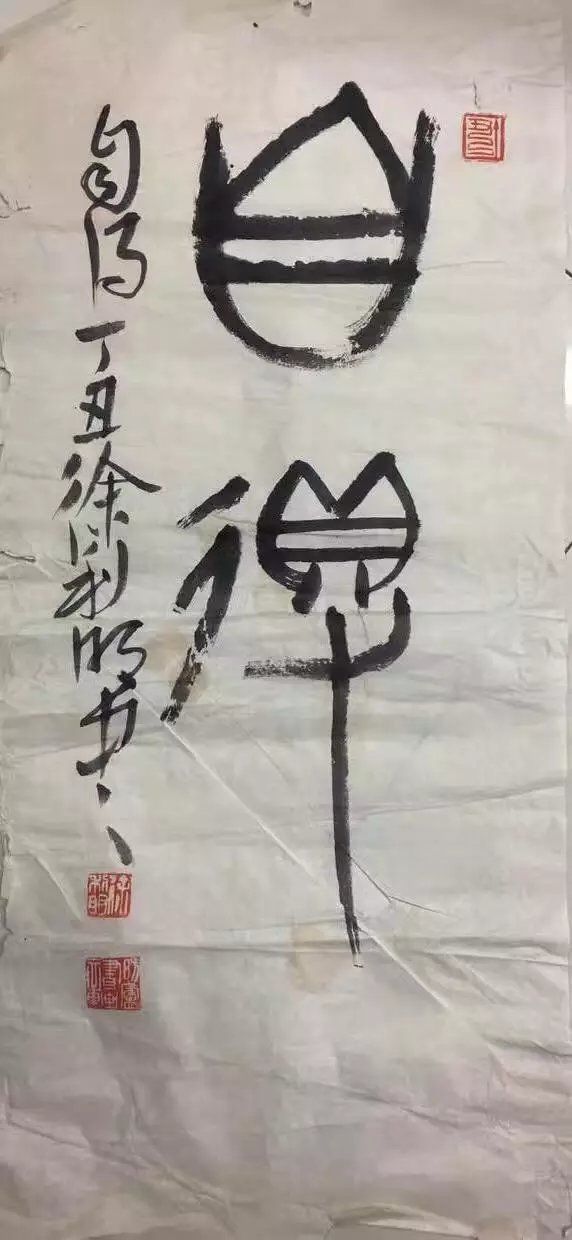 自得
自得丁丑徐利明书